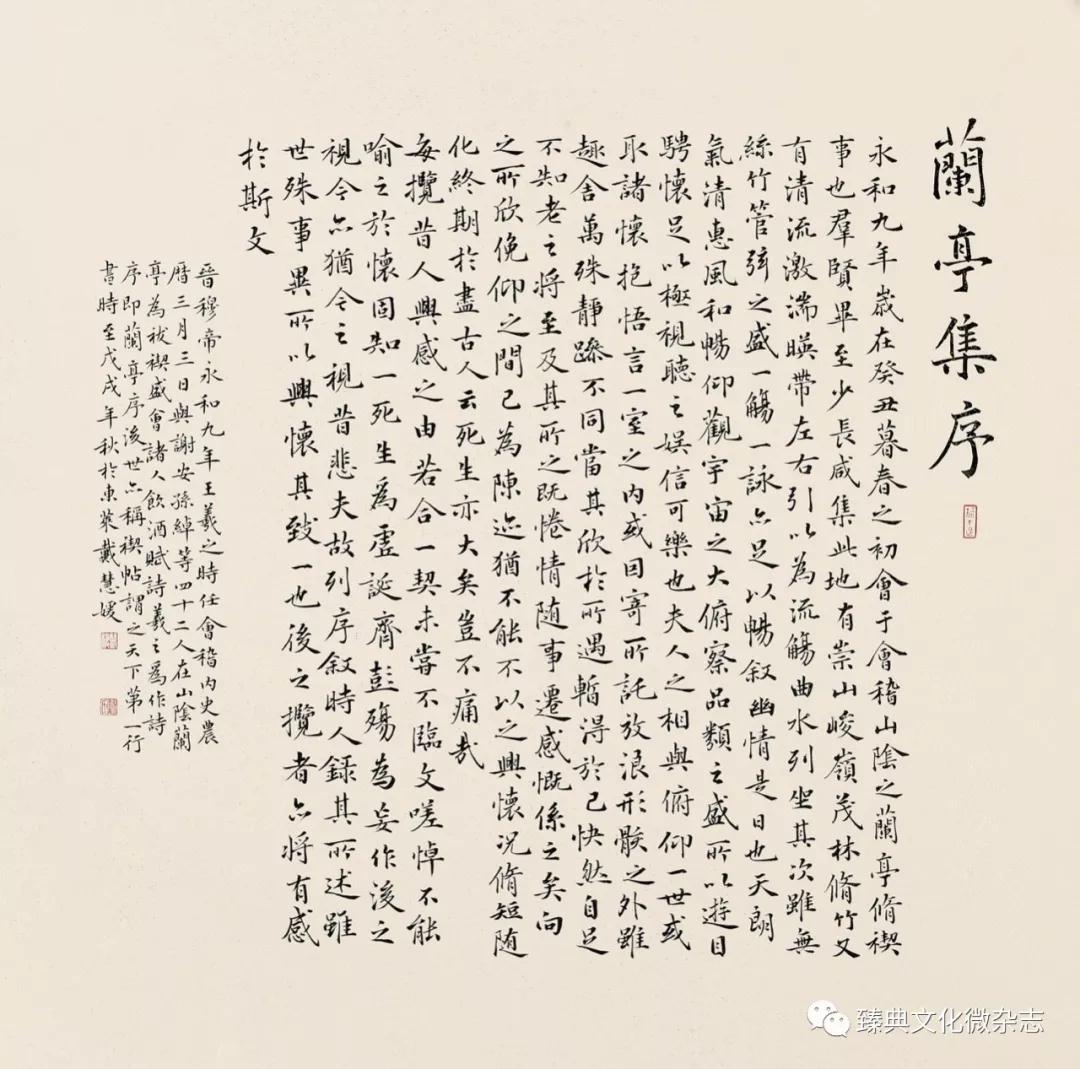 蘭亭集序
永和九年歲在癸丑暮春之初會于會稽山陰之蘭亭脩禊
事也羣賢畢至少長咸集此地有崇山峻嶺茂林脩竹又
有清流激湍暎帶左右引以為流觴曲水列坐其次雖無
絲竹管弦之盛一觴一詠亦足以暢叙幽情是日也天朗
氣清惠風和暢仰觀宇宙之大俯察品類之盛所以遊目
騁懷足以極視聽之娛信可樂也夫人之相與俯仰一世或
取諸懷抱悟言一室之內或因寄所託放浪形骸之外雖
趣舍萬殊靜躁不同當其欣於所遇暫得於己快然自足
不知老之將至及其所之既惓情随事遷感慨係之矣向
之所欣俛仰之間已為陳迹猶不能不以之興懷況脩短随
化終期於盡古人云死生亦大矣豈不痛哉
每攬昔人興感之由若合一契未甞不臨文嗟悼不能
喻之於懷固知一死生為虛誕齊彭殤為妄作後之
視今亦猶今之視昔悲夫故列序叙時人錄其所述雖
世殊事異所以興懷其致一也後之攬者亦將有感
於斯文
晉穆帝永和九年王羲之時任會稽內史農
曆三月三日與謝安孫綽等四十二人在山陰蘭
亭為祓禊盛會諸人飲酒賦詩羲之為作詩
序即蘭亭序後世亦稱禊帖謂之天下第一行
書時至戊戌年秋於東萊戴慧媛
臻典文化微杂志